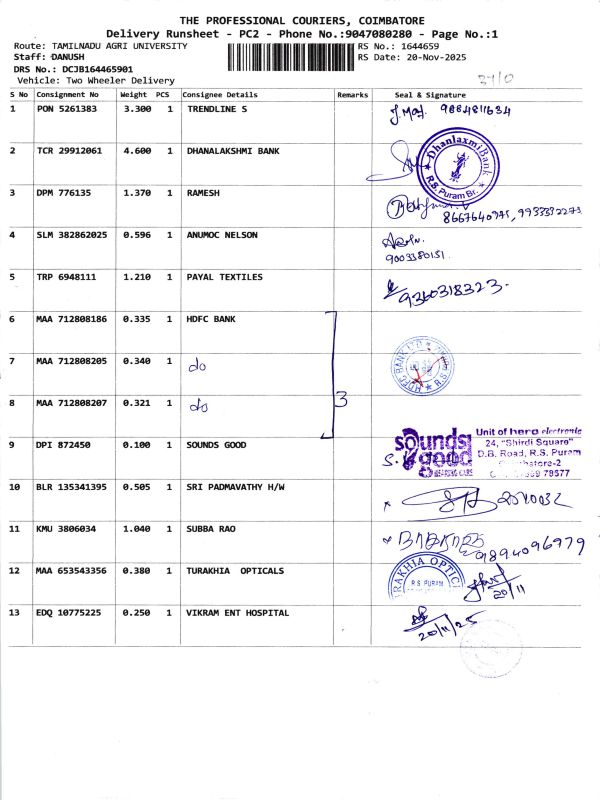 THE PROFESSIONAL COURIERS, COIMBATORE
Delivery Runsheet - PC2 - Phone No.:9047080280 - Page No.:1
Route: TAMILNADU AGRI UNIVERSITY
RS No.: 1644659
Staff: DANUSH
RS Date: 20-Nov-2025
DRS No.: DCJB164465901
Vehicle: Two Wheeler Delivery
S No Consignment No Weight PCS Consignee Details Remarks Seal & Signature
1 PON 5261383 3.300 1 TRENDLINE S 9884811634
2 TCR 29912061 4.600 1 DHANALAKSHMI BANK
DhanlaxmiBank
R.S. Puram Br.
3 DPM 776135 1.370 1 RAMESH
8667640975,
4 SLM 382862025 0.596 1 ANUMOC NELSON
9003380151.
5 TRP 6948111 1.210 1 PAYAL TEXTILES 9360318323.
6 MAA 712808186 0.335 1 HDFC BANK
7 MAA 712808205 0.340 1 do
HDFC BANK LTD
8 MAA 712808207 0.321 1 do 3
9 DPI 872450 0.100 1 SOUNDS GOOD
sounds good
HEARING CARE
Unit of hero electronic
24, "Shirdi Square"
D.B. Road, R.S. Puram
10 BLR 135341395 0.505 1 SRI PADMAVATHY H/W
11 KMU 3806034 1.040 1 SUBBA RAO
9894096979
12 MAA 653543356 0.380 1 TURAKHIA OPTICALS
R.S PURAM
20/11
13 EDQ 10775225 0.250 1 VIKRAM ENT HOSPITAL
20/11/25